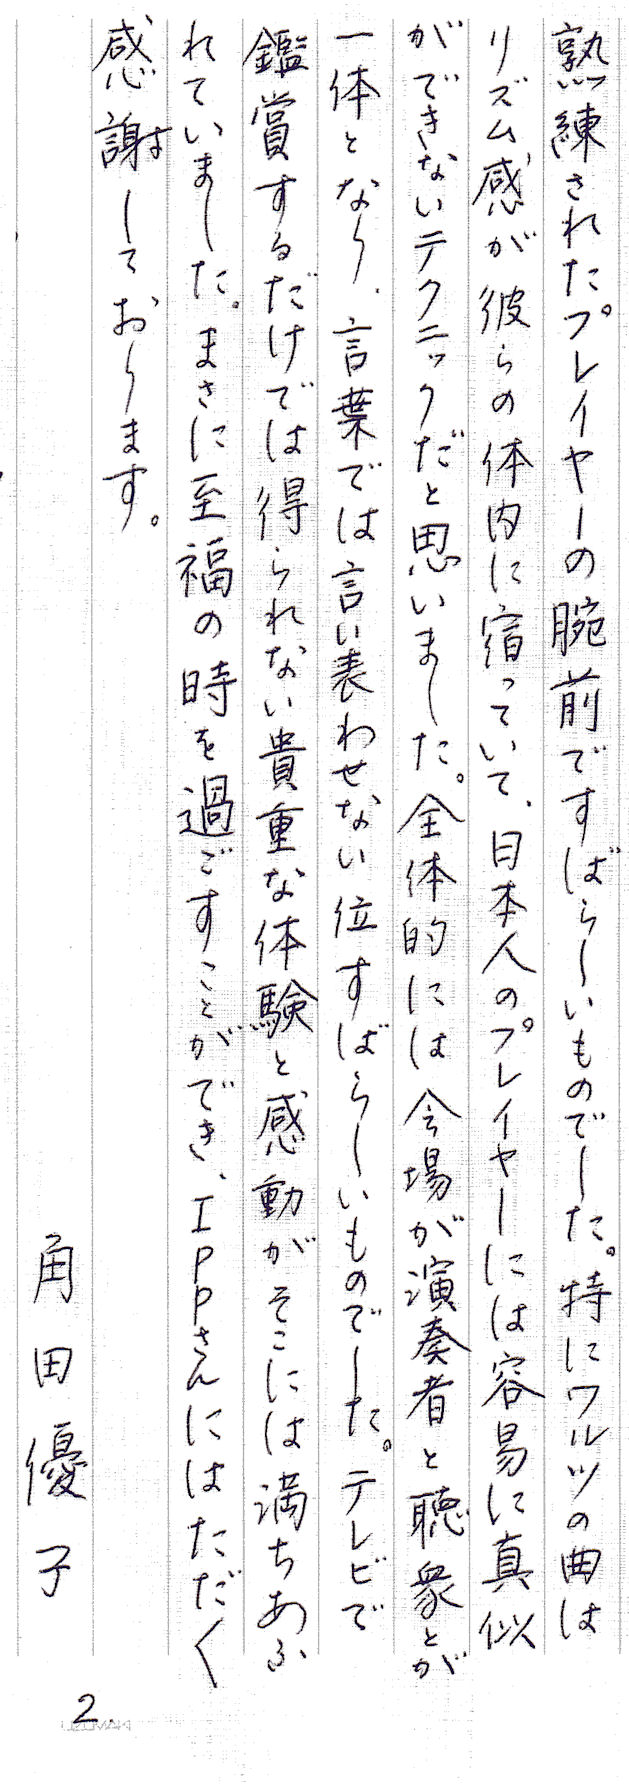 熟練されたプレイヤーの腕前ですばらしいものでした。特にワルツの曲は
リズム感が彼らの体内に宿っていて、日本人のプレイヤーには容易に真似
ができないテクニックだと思いました。全体的には会場が演奏者と聴衆とが
一体となり、言葉では言い表わせない位すばらしいものでした。テレビで
鑑賞するだけでは得られない貴重な体験と感動がそこには満ちあふ
れていました。まさに至福の時を過ごすことができ、IPPさんにはただく
感謝しております。
角田優子
2